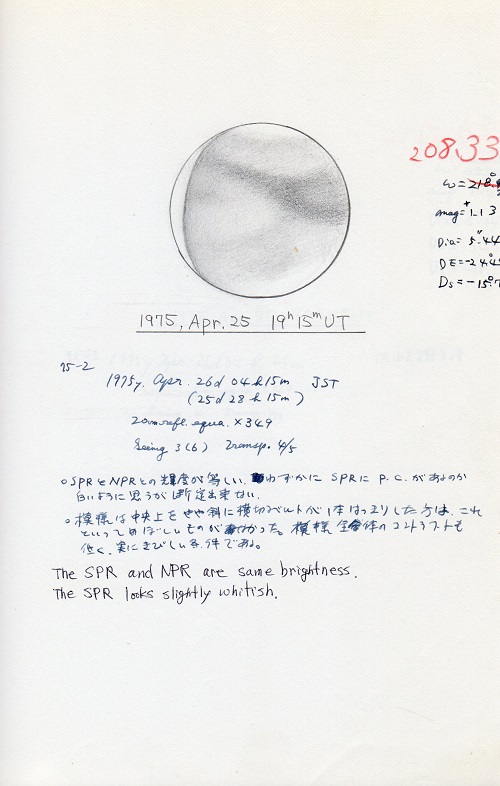 208.33
ω=218°
mag=+1.13
Dia=5".44
DE=-24.4
Ds=-15.7
1975, Apr. 25 19h 15m UT
75-2
1975y. Apr. 26d 04h 15m JST
(25d 28h 15m)
20cm refl. equa. ×349
Seeing 3(6) Transp. 4/5
○SPRとNPRとの輝度が等しい。わずかに SPRに P.C.があるのか
白いように思うが断定出来ない。
○模様は中央上をやや斜に横切るベルトが1本はっきりした方は、これ
といってめぼしいものがなかった。模様全体のコントラストも
低く、実にきびしい条件である。
The SPR and NPR are same brightness.
The SPR looks slightly whitish.